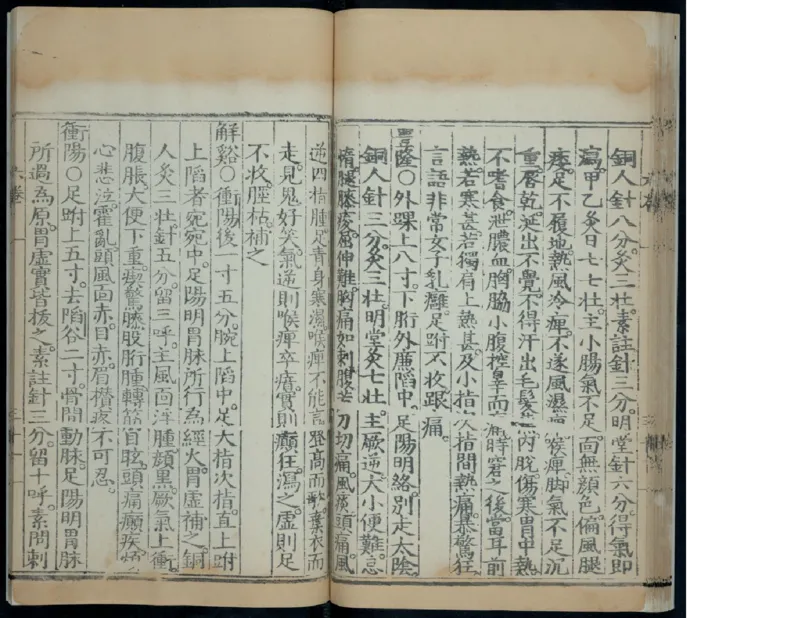 銅人針八分。灸三壯。素註針三分。明堂針六分。得氣即
瀉。甲乙灸日七七壯。主小腸氣不足。面無顏色。偏風腿
瘓。足不履地。熱風冷痺。不遂風濕痺。喉痺。脚氣不足。沉
重唇乾。涎出不覺。不得汗出。毛髮焦。肉脫。傷寒胃中熱。
不嗜食。泄膿血。胸脇小腹控睪而痛。時窘之後。當耳前
熱。若寒甚。若獨肩上熱甚。及小指次指間熱痛。暴驚狂
言語非常。女子乳癰。足跗不收。跟痛。
豐隆○外踝上八寸。下胻外廉陷中。足陽明絡別。走太陰。
銅人針三分。灸三壯。明堂灸七壯。主厥逆。大小便難。怠
惰。腿膝痠。屈伸難。胸痛如刺。腹若刀切痛。風痰頭痛。風
逆四指腫。足青身寒濕。喉痺不能言。登高而歌。棄衣而
走。見鬼好笑。氣逆則喉痺卒瘖。實則癲狂。瀉之。虛則足
不收。脛枯。補之
解谿○衝陽後一寸五分。腕上陷中。足大指次指直上跗
上陷者宛宛中。足陽明胃脉所行為經火。胃虛補之。銅
人灸三壯。針五分。留三呼。主風面浮腫。顏黑。厥氣上衝。
腹脹。大便下重。瘈驚。膝股胻腫。轉筋。目眩。頭痛。癲疾。煩
心悲泣。霍亂。頭風面赤。目赤。眉攢疼不可忍。
衝陽○足跗上五寸。去陷谷二寸。骨間動脉。足陽明胃脉
所過為原。胃虛實皆㧞之。素註針三分。留十呼。素問刺